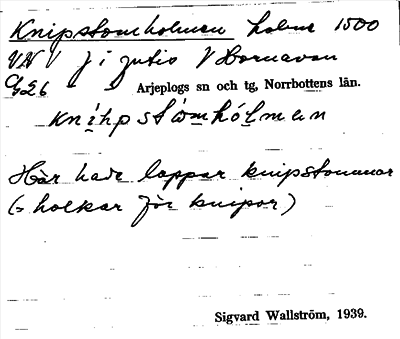 Knipstomholmen holme 1500
VNV j i
V Hornavan
G26 Arjeplogs sn och tg, Norrbottens län.
Här hade lappar knipstommar
(= holkar för knipor)
Sigvard Wallström, 1939.